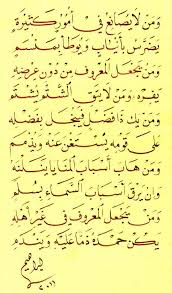 وَمَنْ لَا يُصَانِعْ فِي أُمُورٍ كَثِيرَةٍ
يُضَرَّسْ بِأَنْيَابٍ وَيُوطَأْ بِمَنْسِمِ
وَمَنْ يَجْعَلِ الْمَعْرُوفَ مِنْ دُونِ عِرْضِهِ
يَفِرْهُ وَمَنْ لَا يَتَّقِ الشَّتْمَ يُشْتَمِ
وَمَنْ يَكُ ذَا فَضْلٍ فَيَبْخَلْ بِفَضْلِهِ
عَلَى قَوْمِهِ يُسْتَغْنَ عَنْهُ وَيُذْمَمِ
وَمَنْ هَابَ أَسْبَابَ الْمَنَايَا يَنَلْنَهُ
وَإِنْ يَرْقَ أَسْبَابَ السَّمَاءِ بِسُلَّمِ
وَمَنْ يَجْعَلِ الْمَعْرُوفَ فِي غَيْرِ أَهْلِهِ
يَكُنْ حَمْدُهُ ذَمًّا عَلَيْهِ وَيَنْدَمِ